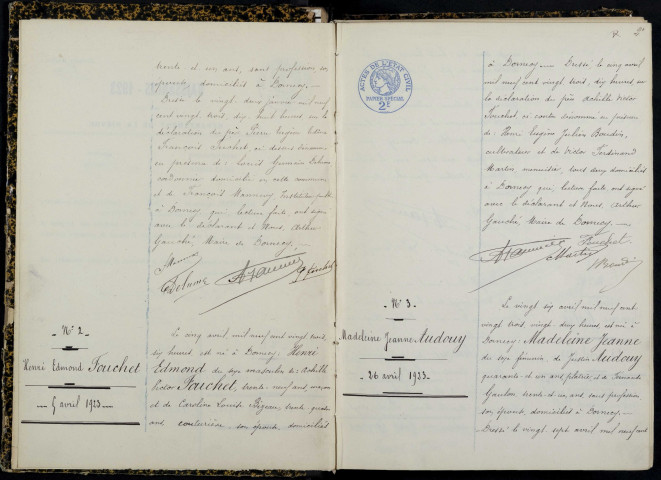 trente et un ans, sans profession son
épouse, domiciliés à Dornecy. —
Dressé le vingt deux janvier mil neuf
cent vingt trois, dix huit heures, sur la
déclaration du père Pierre Eugène
François Touchet ci dessus dénommé
en présence de: Lucien Germain Delume
domicilié en cette commune
et de François Mannevy Instituteur
à Dornecy qui lecture faite ont signé
avec le déclarant et Nous, Arthur
Gauché, Maire de Dornecy. —
Delume
Touchet
N° 2
Henri Edmond Touchet
5 avril 1923
Le cinq avril mil neuf cent vingt trois,
six heures est né à Dornecy: Henri
Edmond du sexe masculin de Achille
Victor Touchet, trente neuf ans, maçon
et de Caroline Louise trente quatre
ans couturière, son épouse, domiciliés
2e
ACTES DE L'ÉTAT CIVIL
PAPIER SPÉCIAL
2F
à Dornecy. — Dressé, le cinq avril
mil neuf cent vingt trois, dix heures, sur
la déclaration du père Achille Victor
Touchet, ci contre dénommé en présence
de Henri Eugène Julien Bourdin,
cultivateur et de Victor Ferdinand
Martin menuisier, tous deux domiciliés
à Dornecy qui, lecture faite ont signé
avec le déclarant et Nous, Arthur
Gauché, Maire de Dornecy. —
Touchet
Martin
N° 3
Madeleine Jeanne Audouy
26 avril 1923
Le vingt six avril mil neuf cent
vingt trois, vingt deux heures est née à
Dornecy: Madeleine Jeanne
du sexe féminin, de Justin Audouy
quarante et un ans plâtrier, et de Fernande
Gaulon trente et un ans, sans profession
son épouse domiciliés à Dornecy. —
Dressé le vingt sept avril mil neuf cent